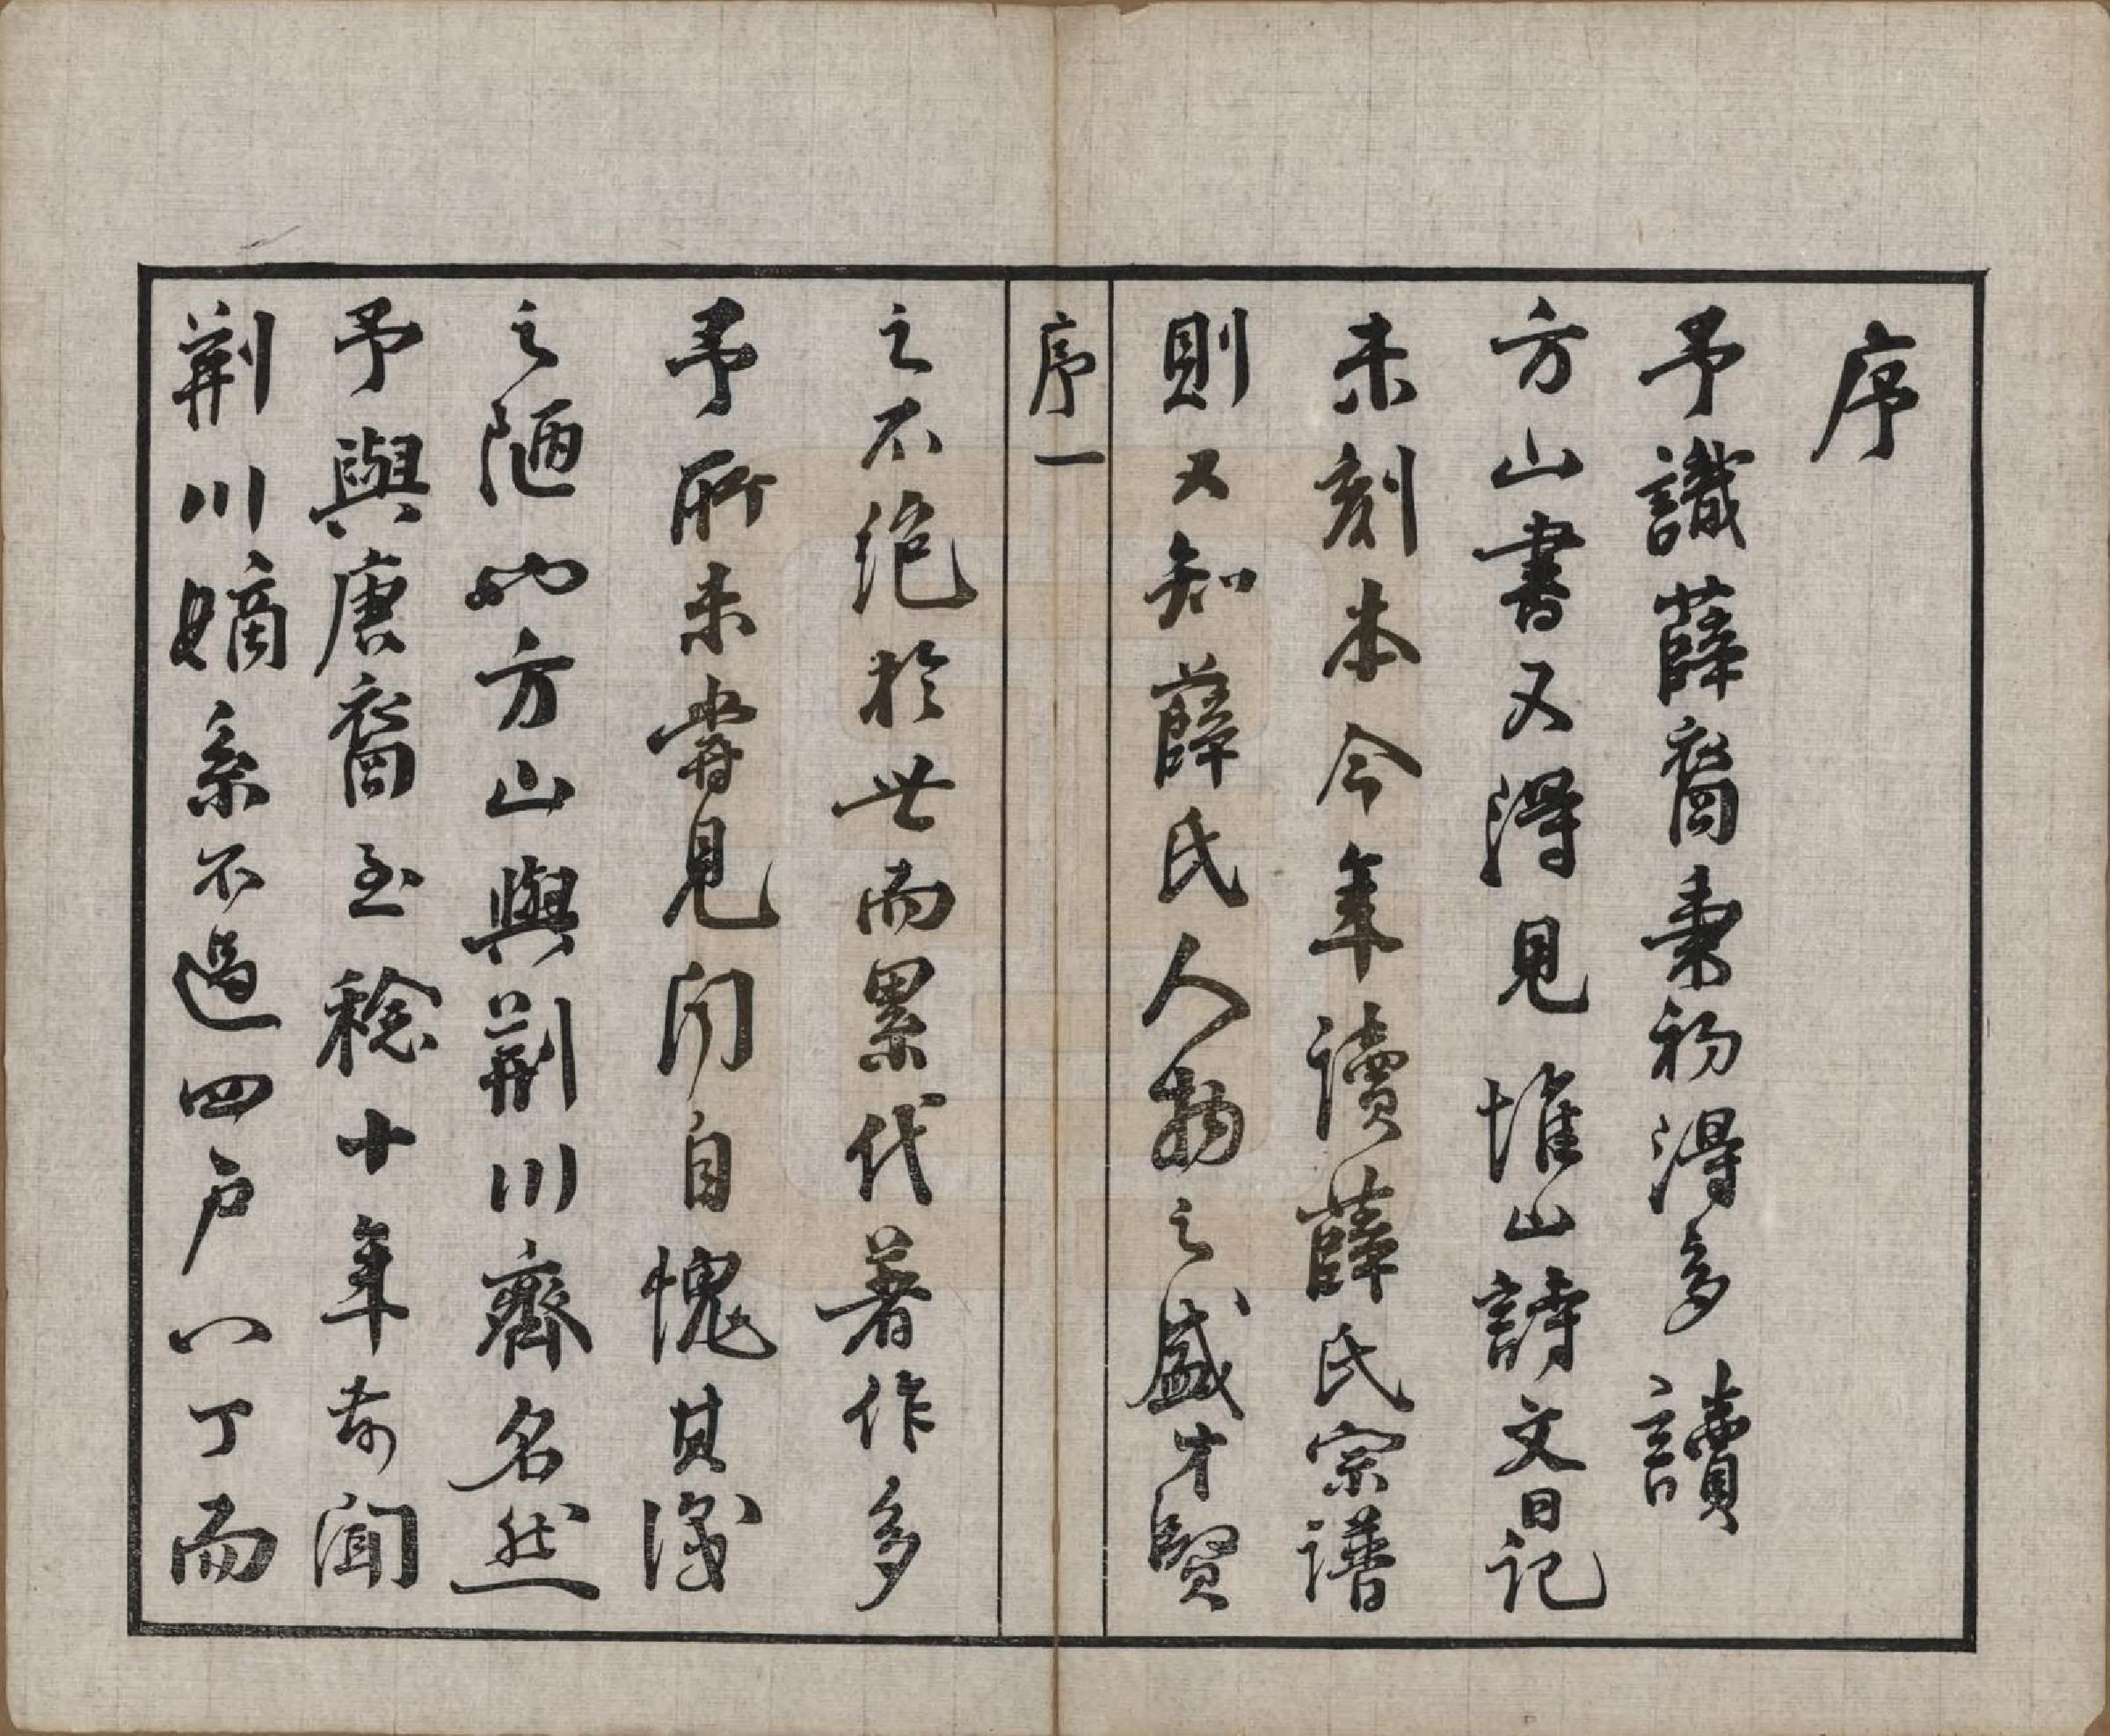 序
予識薛裔秉初得多讀
方山書又得見堆山詩文日記
未刻本今年讀薛氏宗譜
則又知薛氏人物之盛才賢
序一
之不絕於世而累代著作多
予所未嘗見閒自愧其淺
之陋也方山與荊川齊名然
予與唐裔至稔十年前聞
荊川嫡系不過四戶八丁而